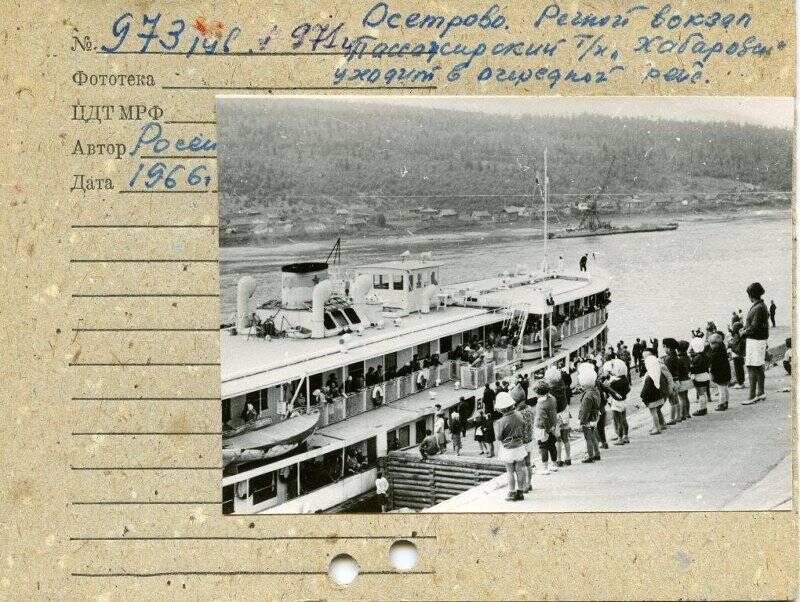 № 973
1971г
Осетрово. Речной вокзал
Пассажирский т/х „Хабаровск"
уходит в очередной рейс.
Фототека
ЦДТ МРФ
Автор Росеи
Дата 1966г